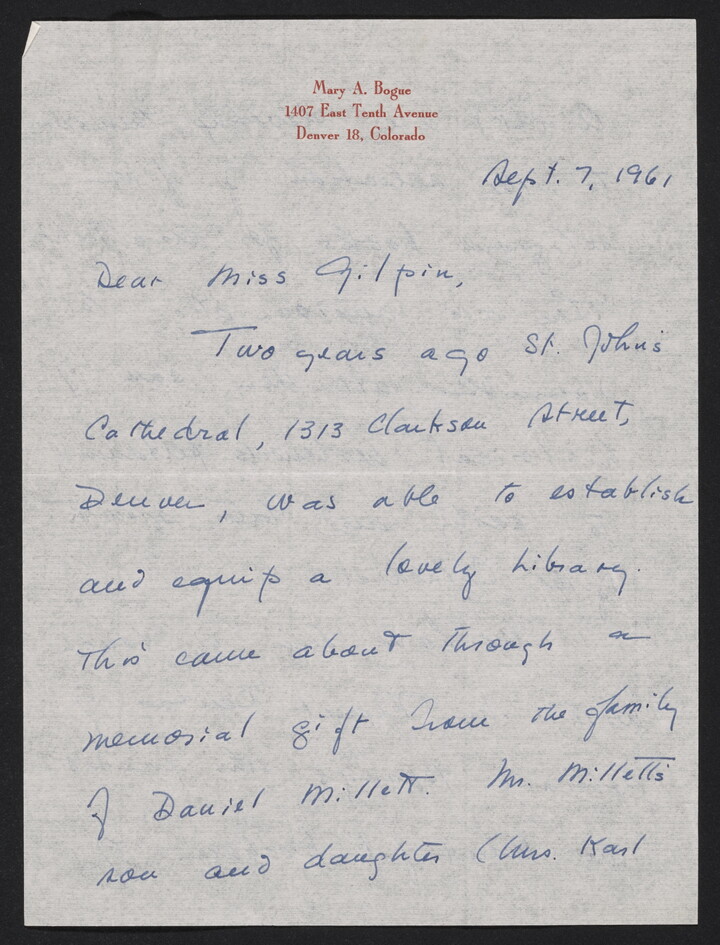 Mary A. Bogue
1407 East Tenth Avenue
Denver 18, Colorado
Sept. 7, 1961
Dear Miss Gilpin,
Two years ago St. John's
Cathedral, 1313 Clarkson Street,
Denver, was able to establish
and equip a lovely library.
This came about through a
memorial gift from the family
of Daniel Millett. Mr. Millett's
son and daughter (Mrs. Karl